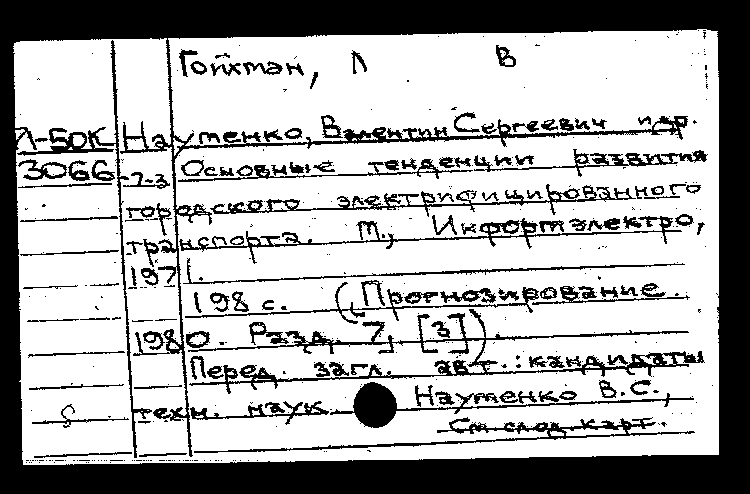 Гойхман, Л В
Л-50К Науменко, Валентин Сергеевич и др.
3066 -7-3 Основные тенденции развития
городского электрифицированного
транспорта. М., Информэлектро,
1971.
198 с. (Прогнозирование.
1980. Разд. 7, [3]).
Перед загл. авт.: кандидаты
техн. наук Науменко В.С.,
См. след. карт.